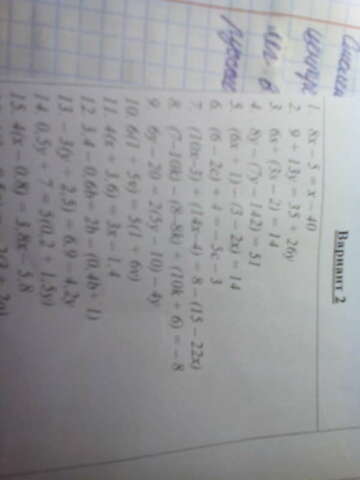 Вариант 2
1. 8x - 5 = x - 40
2. 9 + 13y = 35 + 26y
3. 6x - (3x - 2) = 14
4. 8y - (7y - 142) = 51
5. (6x + 1) - (3 - 2x) = 14
6. (6 - 2c) + 4 = -5c - 3
7. (10x - 3) + (14x - 4) = 8 - (15 - 22x)
8. (7 - 10k) - (8 - 8k) + (10k + 6) = -8
9. 6y - 20 = 2(5y - 10) - 4y
10. 6(1 + 5y) = 5(1 + 6y)
11. 4(x + 3,6) = 3x - 1,4
12. 3,4 - 0,6h = 2h - (0,4h + 1)
13. -3(y + 2,5) = 6,9 - 4,2y
14. 0,5y - 7 = 5(0,2 + 1,5y)
15. 4(x - 0,8) = 3,8x - 5,8